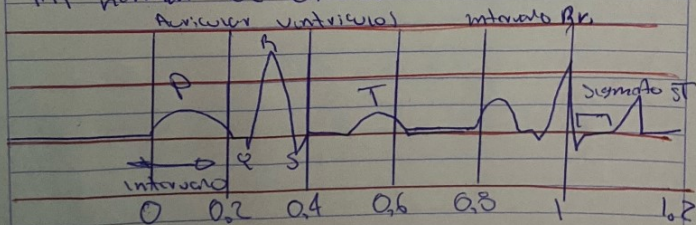 Auricular ventricular Intervalo
R
P T Segmento ST
Q S
Intervalo
0 0,2 0,4 0,6 0,8 1 1.2